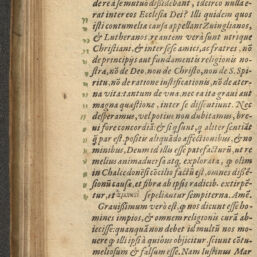 dere à se mutuò dissidebant, idcirco nulla e-
rat inter eos Ecclesia Dei? Illi quidem quos
isti contumeliæ causa appellant Zuinglianos,
& Lutheranos, re autem vera sunt utrique
Christiani, & inter se se amici, ac fratres: nõ
de principiis aut fundamentis religionis no-
stra, nõ de Deo, non de Christo, non de S. Spi-
ritu, nõ de ratione iustificationis, nõ de æter-
na vita: tantum de una, nec ea ita gravi aut
magna quæstione, inter se dissentiunt. Nec
desperamus, vel potius non dubitamus, bre-
vi fore concordiã: & si qui sunt, q̃ aliter sentiãt
q̃ par est, positis aliquãdo affectionibus, & no
minibus, Deum id illis esse patefacturũ, ut re
melius animadversa atq̃, explorata, q̃ olim
in Chalcedonẽsi cõcilio factũ est, omnes dissẽ-
sionũ causæ, et fibræ ab ipsis radicib. extirpẽ-
tur, et sepeliantur sempiterna. Amẽ.
Gravissimum verò est, q̃ nos dicunt esse ho-
mines impios, & omnem religionis curã ab-
iecisse: quanquam non debet id multũ nos mo-
vere q̃ illi ipsi à quions obiicitur sciunt cõtu-
meliosum & falsum esse. Nam Iustinus Mar